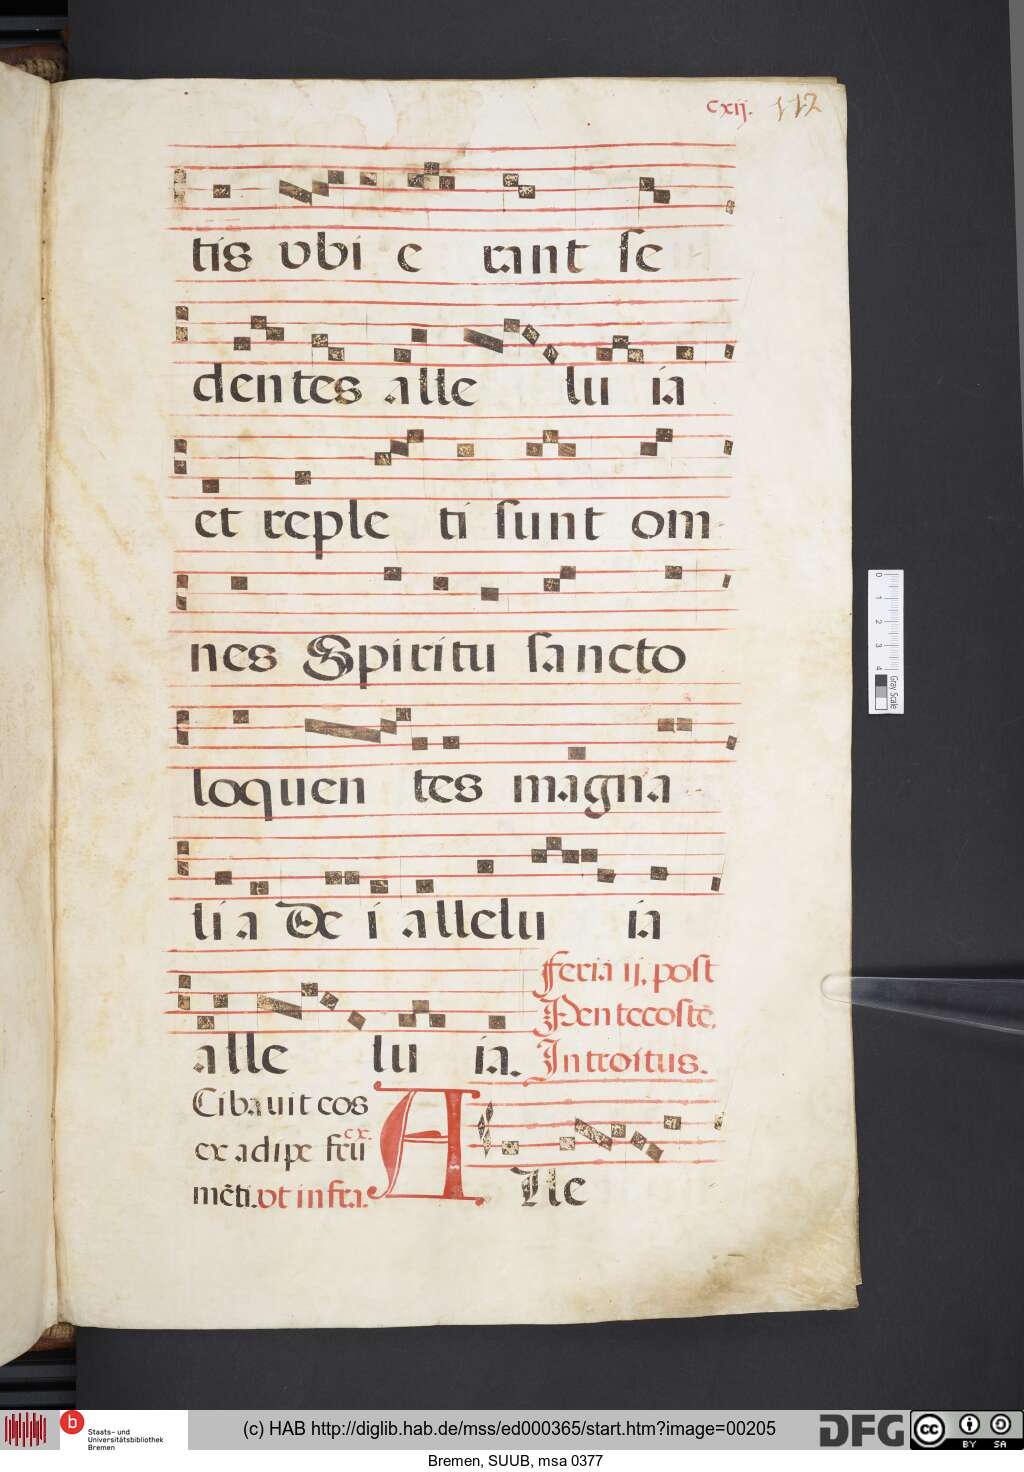 cxij. 112
tis vbi e rant se
dentes alle lu ia
et reple ti sunt om
nes Spiritu sancto
loquen tes magna
li a De i allelu ia
feria ij. post
Pentecostē.
alle lu ia. Introitus.
Cibauit eos
ex adipe fru
cx.
mēti. vt infra.
A lle
0 1 2 3 4
Gray Scale
b
Staats- und
Universitätsbibliothek
Bremen
(c) HAB http://diglib.hab.de/mss/ed000365/start.htm?image=00205
DFG
cc BY SA
Bremen, SUUB, msa 0377